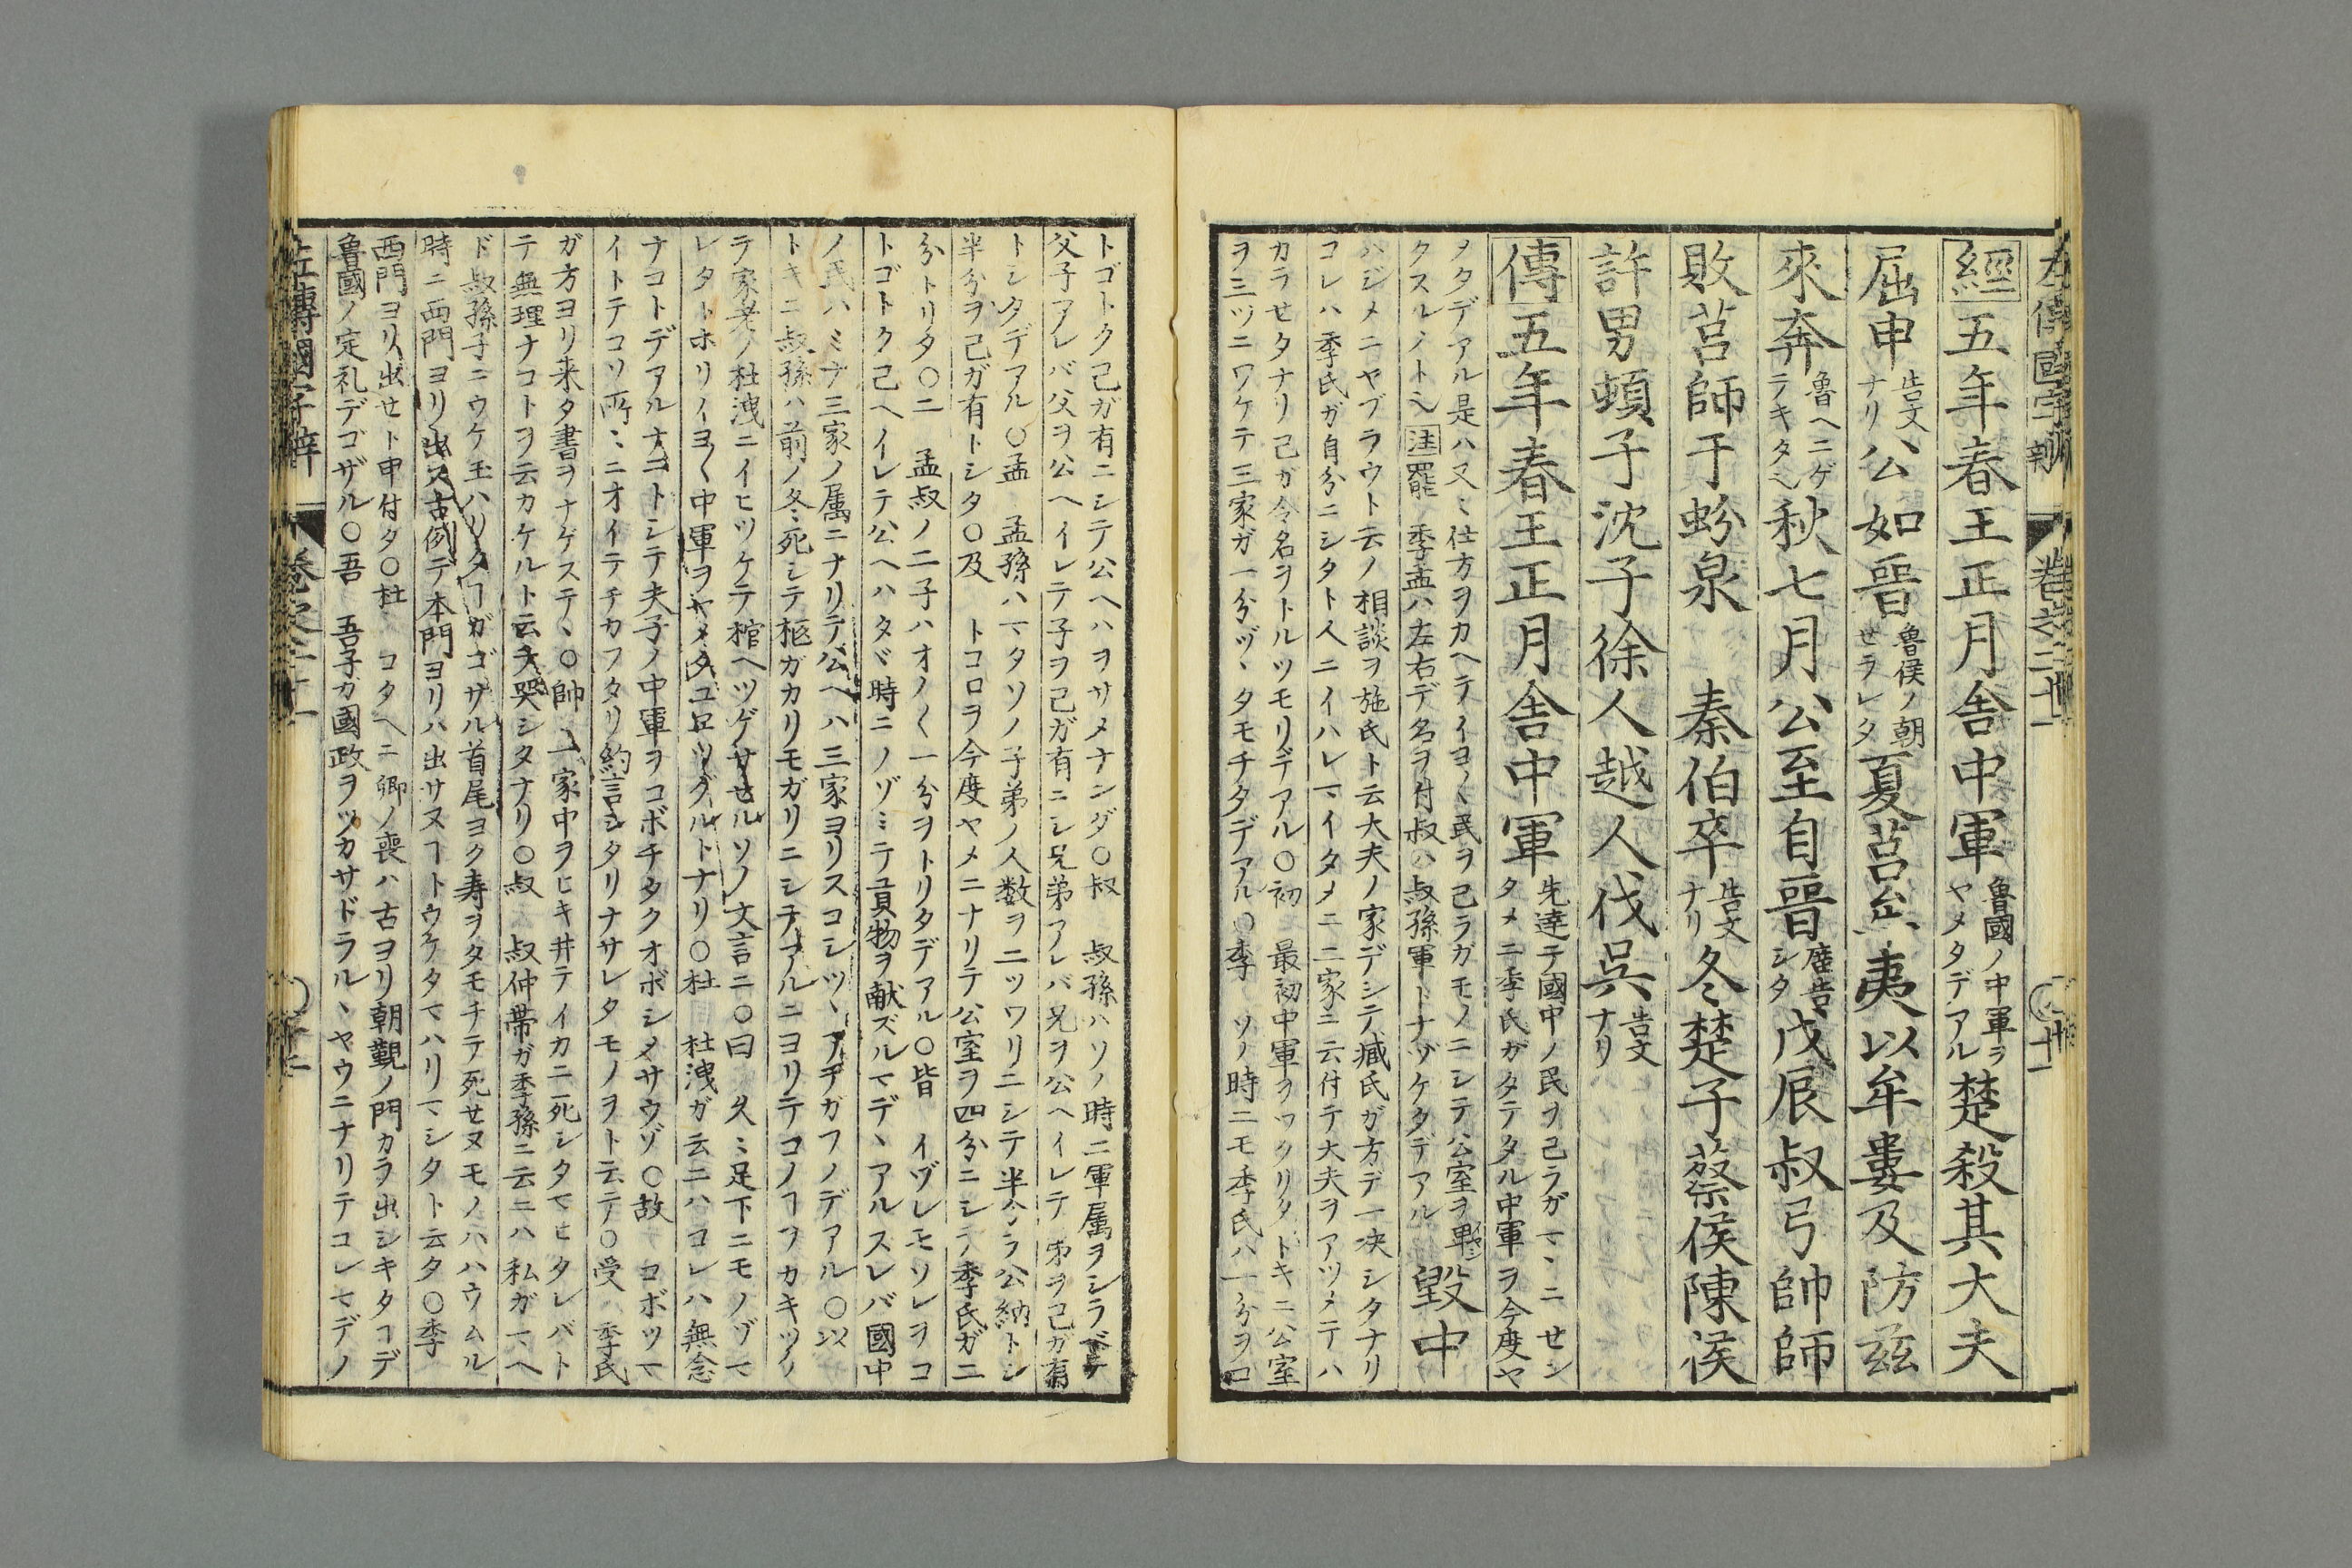 左傳國字辯 卷之二十一
經五年春王正月舎中軍魯國ノ中軍ヲヤメタデアル楚殺其大夫
屈申告文ナリ公如晉魯侯ノ朝セラレタ夏莒牟夷以牟婁及防茲
來奔魯ヘニゲテキタヘ秋七月公至自晉廟告シタ戊辰叔弓帥師
敗莒師于蚡泉 秦伯卒告文ナリ冬楚子蔡侯陳侯
許男頓子沈子徐人越人伐呉告文ナリ
傳五年春王正月舎中軍先達テ國中ノ民ヲ己ラガマヽニセン
タメニ季氏ガタテタル中軍ヲ今度ヤ
メタデアル是ハ又ミ仕方ヲカヘテイヨ〱民ヲ己ラガモノニシテ公室ヲ卑
クスルノトヘ注罷 季孟ハ左右デ名ヲ付叔ハ叔孫軍トナヅケタデアル 毀中
ハジメニヤブラウト云ノ相談ヲ施氏ト云大夫ノ家デシテ臧氏ガ方デ一决シタナリ
コレハ季氏ガ自分ニシタト人ニイハレマイタメニ二家ニ云付テ大夫ヲアツメテハ
カラセタナリ己ガ令名ヲトルツモリデアル〇初 最初中軍ヲツクリタトキニ公室
ヲ三ツニワケテ三家ガ一分ヅヽタモチタデアル〇季 ソノ時ニモ季氏ハ一分ヲコ
トゴトク己ガ有ニシテ公ヘハヲサメナンダ〇叔 叔孫ハソノ時ニ軍属ヲシラベテ
父子アレバ父ヲ公ヘイレテ子ヲ己ガ有ニシ兄弟アレバ兄ヲ公ヘイレテ弟ヲ己ガ有
トシタデアル〇孟 孟孫ハマタソノ子弟ノ人数ヲ二ツワリニシテ半分ヲ公納トシ
半分ヲ己ガ有トシタ〇及 トコロヲ今度ヤメニナリテ公室ヲ四分ニシテ季氏ガ二
分トリタ〇二 孟叔ノ二子ハオノ〱一分ヲトリタデアル〇皆 イヅレモソレヲコ
トゴトク己ヘイレテ公ヘハタヾ時ニノゾミテ貢物ヲ献ズルマデヽアルスレバ國中
ノ民ハミナ三家ノ属ニナリテ公ヘハ三家ヨリスコシツヽアヂガフノデアル〇以
トキニ叔孫ハ前ノ冬死シテ柩ガカリモガリニシテアルニヨリテコノヿヲカキツケ
テ家老ノ杜洩ニイヒツケテ棺ヘツゲサセルソノ文言ニ〇曰 久ミ足下ニモノゾマ
レタトホリイヨ〱中軍ヲヤメタユヱツグルトナリ〇杜 杜洩ガ云ニハコレハ無念
ナコトデアルナニトシテ夫子ノ中軍ヲコボチタクオボシメサウゾ〇故 コボツマ
イトテコソ所ミニオイテチカフタリ約言シタリナサレタモノヲト云テ〇受 季氏
ガ方ヨリ来タ書ヲナゲステヽ〇帥 一家中ヲヒキ井テイカニ死シタマヒタレバト
テ無理ナコトヲ云カケルト云テ哭シタナリ〇叔 叔仲帯ガ季孫ニ云ニハ私ガマヘ
ド叔孫子ニウケ玉ハリタヿガゴザル首尾ヨク寿ヲタモチテ死セヌモノハハウムル
時ニ西門ヨリ出ス古例デ本門ヨリハ出サヌヿトウケタマハリマシタト云タ〇季
西門ヨリ出セト申付タ〇杜 コタヘニ卿ノ喪ハ古ヨリ朝覲ノ門カラ出シキタヿデ
魯國ノ定礼デゴザル〇吾 吾子ガ國政ヲツカサドラルヽヤウニナリテコレマデノ
左傳國字辯 卷之二十一